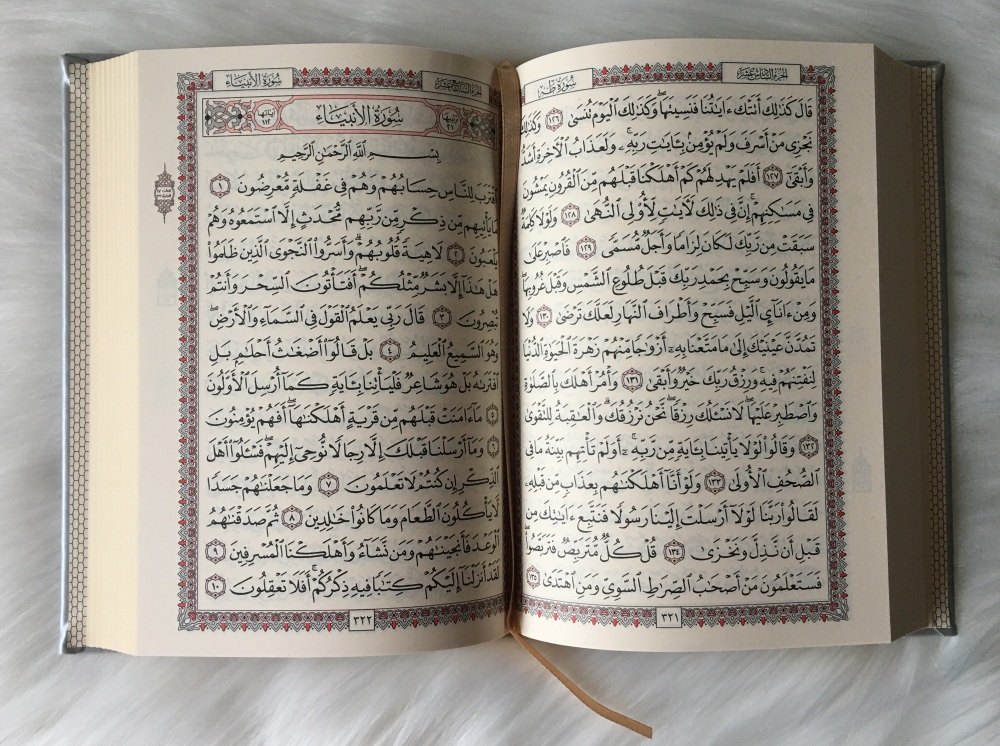 الجزء السادس عشر
سورة طه
قَالَ كَذَٰلِكَ أَتَتْكَ ءَايَٰتُنَا فَنَسِيتَهَا ۖ وَكَذَٰلِكَ ٱلْيَوْمَ تُنسَىٰ ١٢٦ وَكَذَٰلِكَ
نَجْزِى مَنْ أَسْرَفَ وَلَمْ يُؤْمِنۢ بِـَٔايَٰتِ رَبِّهِۦ ۚ وَلَعَذَابُ ٱلْءَاخِرَةِ أَشَدُّ
وَأَبْقَىٰٓ ١٢٧ أَفَلَمْ يَهْدِ لَهُمْ كَمْ أَهْلَكْنَا قَبْلَهُم مِّنَ ٱلْقُرُونِ يَمْشُونَ
فِى مَسَٰكِنِهِمْ ۗ إِنَّ فِى ذَٰلِكَ لَءَايَٰتٍ لِّأُو۟لِى ٱلنُّهَىٰ ١٢٨ وَلَوْلَا كَلِمَةٌ
سَبَقَتْ مِن رَّبِّكَ لَكَانَ لِزَامًا وَأَجَلٌ مُّسَمًّى ١٢٩ فَٱصْبِرْ عَلَىٰ
مَا يَقُولُونَ وَسَبِّحْ بِحَمْدِ رَبِّكَ قَبْلَ طُلُوعِ ٱلشَّمْسِ وَقَبْلَ غُرُوبِهَا ۖ
وَمِنْ ءَانَآئِ ٱلَّيْلِ فَسَبِّحْ وَأَطْرَافَ ٱلنَّهَارِ لَعَلَّكَ تَرْضَىٰ ١٣٠ وَلَا
تَمُدَّنَّ عَيْنَيْكَ إِلَىٰ مَا مَتَّعْنَا بِهِۦٓ أَزْوَٰجًا مِّنْهُمْ زَهْرَةَ ٱلْحَيَوٰةِ ٱلدُّنْيَا
لِنَفْتِنَهُمْ فِيهِ ۚ وَرِزْقُ رَبِّكَ خَيْرٌ وَأَبْقَىٰ ١٣١ وَأْمُرْ أَهْلَكَ بِٱلصَّلَوٰةِ
وَٱصْطَبِرْ عَلَيْهَا ۖ لَا نَسْـَٔلُكَ رِزْقًا ۖ نَّحْنُ نَرْزُقُكَ ۗ وَٱلْعَٰقِبَةُ لِلتَّقْوَىٰ
١٣٢ وَقَالُوا۟ لَوْلَا يَأْتِينَا بِـَٔايَةٍ مِّن رَّبِّهِۦٓ ۚ أَوَلَمْ تَأْتِهِم بَيِّنَةُ مَا فِى
ٱلصُّحُفِ ٱلْأُولَىٰ ١٣٣ وَلَوْ أَنَّآ أَهْلَكْنَٰهُم بِعَذَابٍ مِّن قَبْلِهِۦ
لَقَالُوا۟ رَبَّنَا لَوْلَآ أَرْسَلْتَ إِلَيْنَا رَسُولًا فَنَتَّبِعَ ءَايَٰتِكَ مِن
قَبْلِ أَن نَّذِلَّ وَنَخْزَىٰ ١٣٤ قُلْ كُلٌّ مُّتَرَبِّصٌ فَتَرَبَّصُوا۟ ۖ
فَسَتَعْلَمُونَ مَنْ أَصْحَٰبُ ٱلصِّرَٰطِ ٱلسَّوِىِّ وَمَنِ ٱهْتَدَىٰ ١٣٥
٣٢١
الجزء السابع عشر
سورة الأنبياء
ترتيبها ٢١
سورة الأنبياء
آياتها ١١٢
بِسْمِ ٱللَّهِ ٱلرَّحْمَٰنِ ٱلرَّحِيمِ
ٱقْتَرَبَ لِلنَّاسِ حِسَابُهُمْ وَهُمْ فِى غَفْلَةٍ مُّعْرِضُونَ ١
مَا يَأْتِيهِم مِّن ذِكْرٍ مِّن رَّبِّهِم مُّحْدَثٍ إِلَّا ٱسْتَمَعُوهُ وَهُمْ
يَلْعَبُونَ ٢ لَاهِيَةً قُلُوبُهُمْ ۗ وَأَسَرُّوا۟ ٱلنَّجْوَى ٱلَّذِينَ ظَلَمُوا۟
هَلْ هَٰذَآ إِلَّا بَشَرٌ مِّثْلُكُمْ ۖ أَفَتَأْتُونَ ٱلسِّحْرَ وَأَنتُمْ
تُبْصِرُونَ ٣ قَالَ رَبِّى يَعْلَمُ ٱلْقَوْلَ فِى ٱلسَّمَآءِ وَٱلْأَرْضِ ۖ
وَهُوَ ٱلسَّمِيعُ ٱلْعَلِيمُ ٤ بَلْ قَالُوٓا۟ أَضْغَٰثُ أَحْلَٰمٍۭ بَلِ
ٱفْتَرَىٰهُ بَلْ هُوَ شَاعِرٌ فَلْيَأْتِنَا بِـَٔايَةٍ كَمَآ أُرْسِلَ ٱلْأَوَّلُونَ
٥ مَآ ءَامَنَتْ قَبْلَهُم مِّن قَرْيَةٍ أَهْلَكْنَٰهَآ ۖ أَفَهُمْ يُؤْمِنُونَ
٦ وَمَآ أَرْسَلْنَا قَبْلَكَ إِلَّا رِجَالًا نُّوحِىٓ إِلَيْهِمْ ۖ فَسْـَٔلُوٓا۟ أَهْلَ
ٱلذِّكْرِ إِن كُنتُمْ لَا تَعْلَمُونَ ٧ وَمَا جَعَلْنَٰهُمْ جَسَدًا
لَّا يَأْكُلُونَ ٱلطَّعَامَ وَمَا كَانُوا۟ خَٰلِدِينَ ٨ ثُمَّ صَدَقْنَٰهُمُ
ٱلْوَعْدَ فَأَنجَيْنَٰهُمْ وَمَن نَّشَآءُ وَأَهْلَكْنَا ٱلْمُسْرِفِينَ ٩
لَقَدْ أَنزَلْنَآ إِلَيْكُمْ كِتَٰبًا فِيهِ ذِكْرُكُمْ ۖ أَفَلَا تَعْقِلُونَ ١٠
٣٢٢